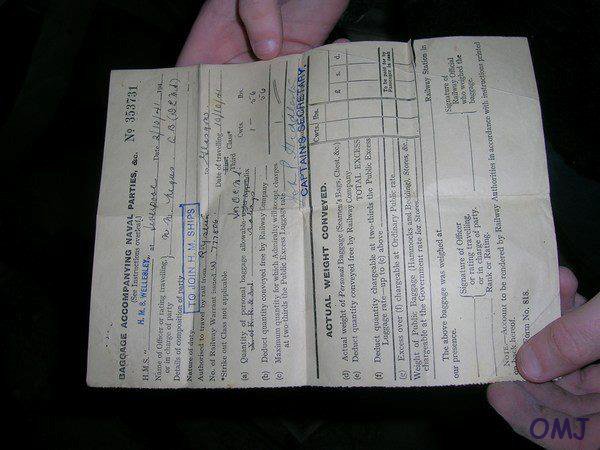 BAGGAGE ACCOMPANYING NAVAL PARTIES, &c.
No 353731
(See Instructions overleaf.)
H.M.S. WELLESLEY.
H.M.S. " at Liverpool Date 2/10/41 194
Name of Officer or rating travelling, or in charge of party
Details of composition of party
Nature of duty TO JOIN H.M SHIPS
Authorised to travel by rail from to Glasgow
No. of Railway Warrant issued Date of travelling 10/10/41
*Strike out Class not applicable. First Third Class*
Cwts. lbs.
(a) Quantity of personal baggage allowable—
(b) Deduct quantity conveyed free by Railway Company
(c) Maximum quantity for which Admiralty will accept charges at two-thirds the Public Excess Luggage rate
CAPTAIN'S SECRETARY.
ACTUAL WEIGHT CONVEYED.
Cwts. lbs. £ s. d.
To be paid for by Passenger in cash
(d) Actual weight of Personal Baggage (Seamen's Bags, Chest, &c.)
(e) Deduct quantity conveyed free by Railway Company
TOTAL EXCESS
(f) Deduct quantity chargeable at two-thirds the Public Excess Luggage rate—up to (c) above
(g) Excess over (f) chargeable at Ordinary Public rate
Weight of Public Baggage (Hammocks and Beddings, Stores, &c. chargeable at the Government rate for Stores
The above baggage was weighed at Railway Station in our presence.
Signature of Officer or rating travelling, or in charge of party.
Rank or Rating
Signature of Railway Official who weighed the baggage.
NOTE.—Account to be rendered by Railway Authorities in accordance with instructions printed on back hereof.
Form No. 818.
OMJ